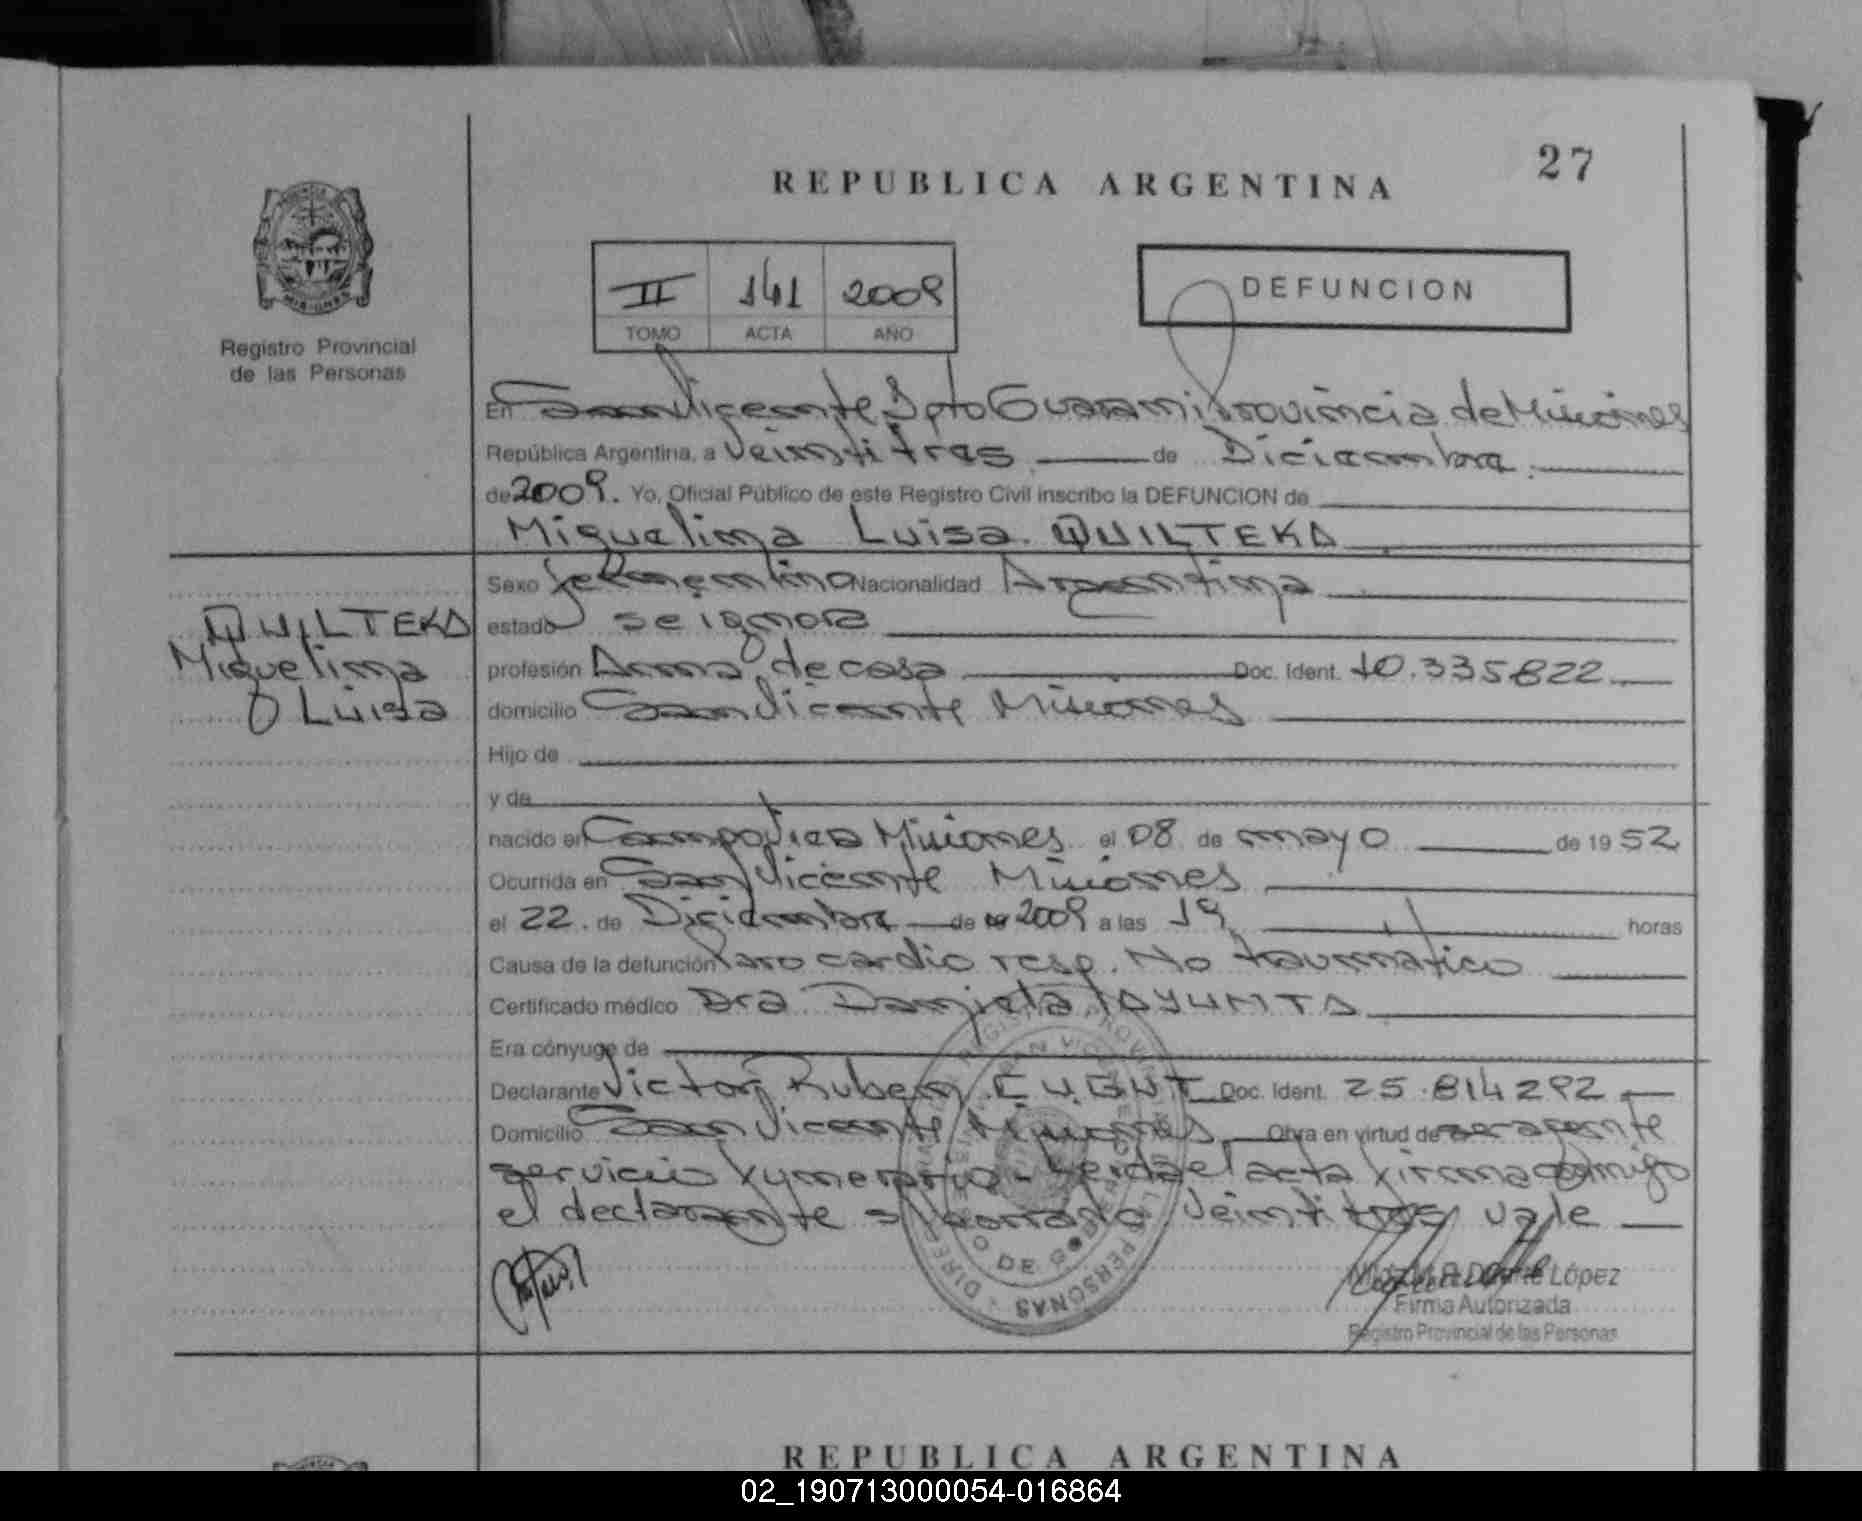 27
REPUBLICA ARGENTINA
II 141 2009
TOMO ACTA AÑO
DEFUNCION
Registro Provincial
de las Personas
En San Vicente Dpto Guarani Provincia de Misiones
República Argentina, a veintitres de Diciembre
de 2009. Yo, Oficial Público de este Registro Civil inscribo la DEFUNCION de
Miguelina Luisa QUILTEKA
QUILTEKA
Miguelina
Luisa
Sexo femenino Nacionalidad Argentina
estado se ignora
profesión Ama de casa Doc. Ident. 10.335822
domicilio San Vicente Misiones
Hijo de
y de
nacido en Campo Viera Misiones el 08 de mayo de 1952
Ocurrida en San Vicente Misiones
el 22 de Diciembre de 2009 a las 19 horas
Causa de la defunción Paro cardio resp. No traumático
Certificado médico Dra Daniela
Era cónyuge de
Declarante Victor Ruben Doc. Ident. 25.814292
Domicilio San Vicente Misiones Obra en virtud de ser agente
servicio funerario - Leida el acta firma conmigo
el declarante s/borrado: veintitres vale
López
Firma Autorizada
Registro Provincial de las Personas
REPUBLICA ARGENTINA
02_190713000054-016864